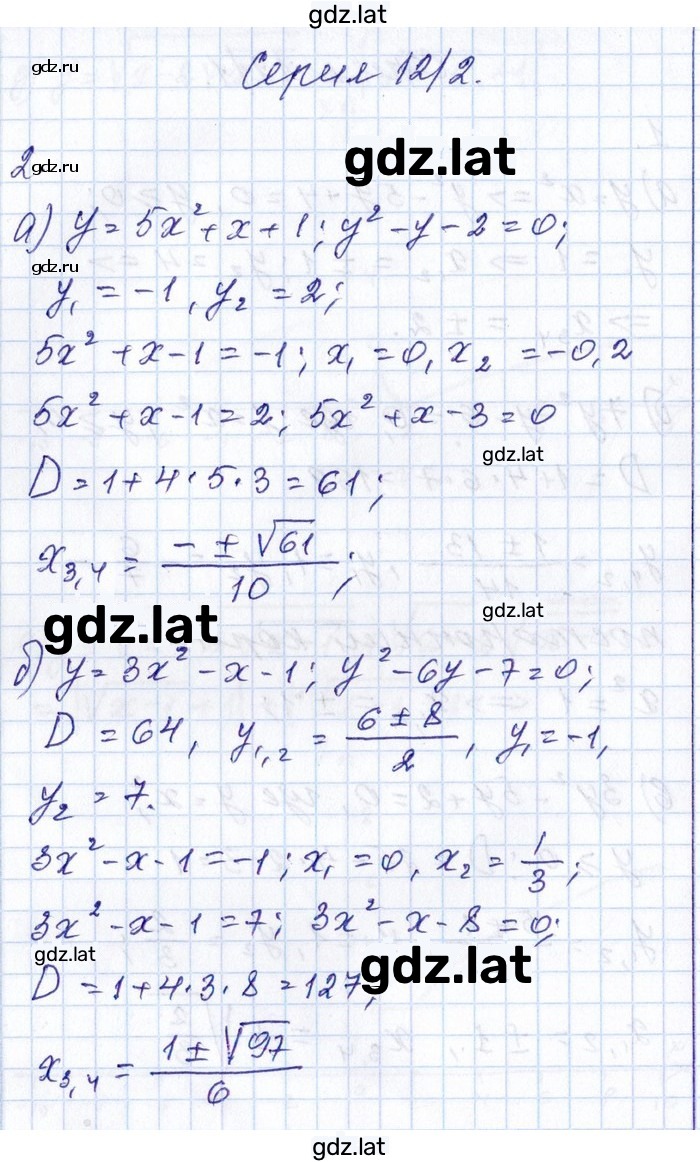 gdz.lat
gdz.ru
Серия 12/2.
gdz.lat
2
gdz.ru
а) y = 5x² + x + 1; y² - y - 2 = 0;
gdz.ru
y₁ = -1, y₂ = 2;
5x² + x - 1 = -1; x₁ = 0, x₂ = -0,2
5x² + x - 1 = 2; 5x² + x - 3 = 0
gdz.lat
D = 1 + 4·5·3 = 61;
x₃,₄ = (- ± √61)/10;
gdz.lat
gdz.lat
б) y = 3x² - x - 1; y² - 6y - 7 = 0;
D = 64, y₁,₂ = (6 ± 8)/2, y₁ = -1,
y₂ = 7.
3x² - x - 1 = -1; x₁ = 0, x₂ = 1/3;
3x² - x - 1 = 7; 3x² - x - 8 = 0;
gdz.lat
gdz.lat
D = 1 + 4·3·8 = 127;
x₃,₄ = (1 ± √97)/6
gdz.lat